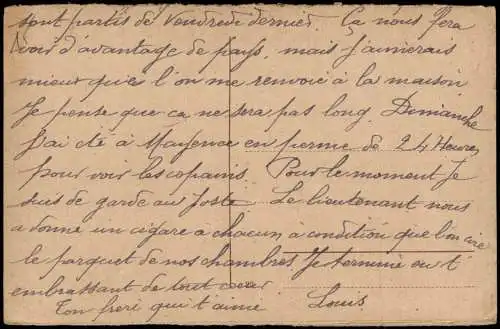 sont partis de Vendredi dernier. Ça nous fera
voir d'avantage de pays, mais j'aimerais
mieux que l'on me renvoie à la maison
Je pense que ça ne sera pas long. Dimanche
J'ai été à Mayence en perme de 24 Heures
pour voir les copains. Pour le moment Je
suis de garde au Poste. Le lieutenant nous
a donné un cigare a chacun à condition que l'on cire
le parquet de nos chambres. Je termine en t'
embrassant de tout coeur
Ton frere qui t'aime Louis.